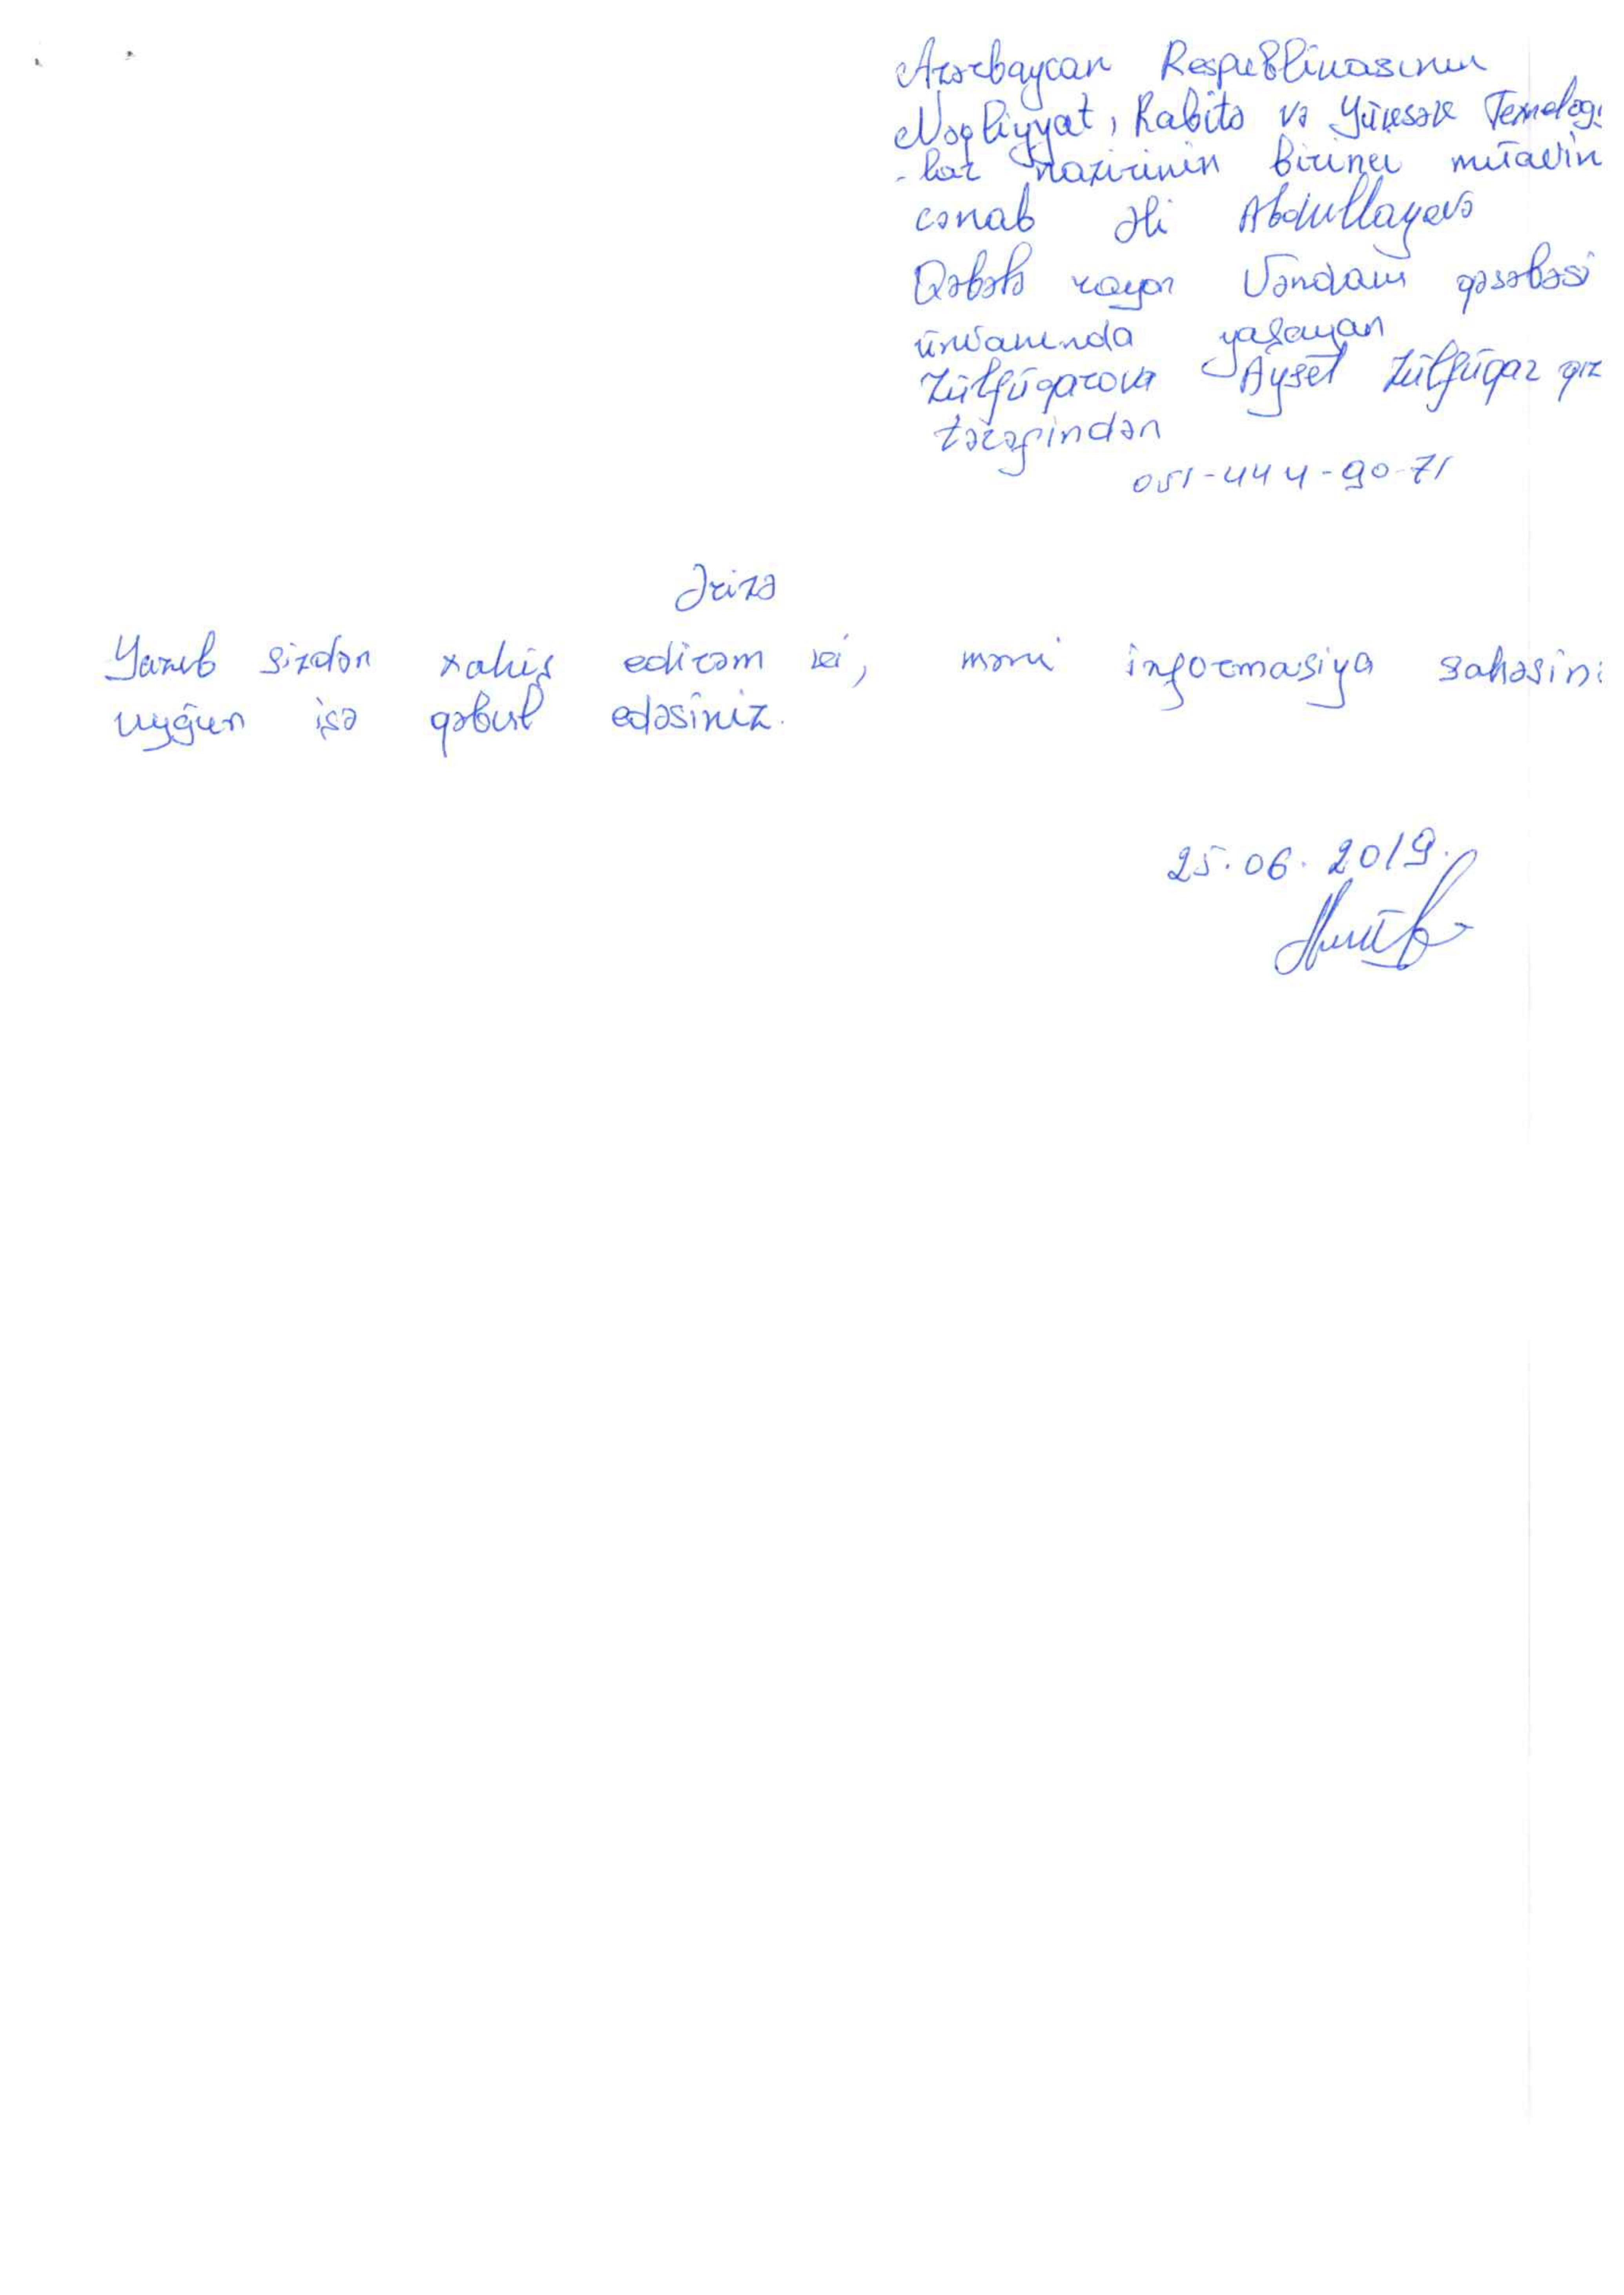 Azərbaycan Respublikasının
Nəqliyyat, Rabitə və Yüksək Texnologi
-lar nazirinin birinci müavin
cənab Əli Abdullayevə
Qəbələ rayon Vəndam qəsəbəsi
ünvanında yaşayan
Zülfüqarova Aysel Zülfüqar qız
tərəfindən
051-444-90-71
Ərizə
Yazıb sizdən xahiş edirəm ki, məni informasiya sahəsinə
uyğun işə qəbul edəsiniz.
25.06.2019.